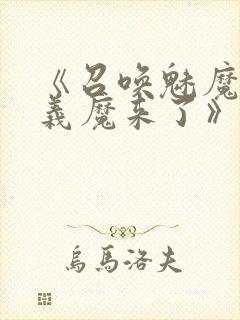 《召唤魅魔
義魔来了》
烏馬洛夫